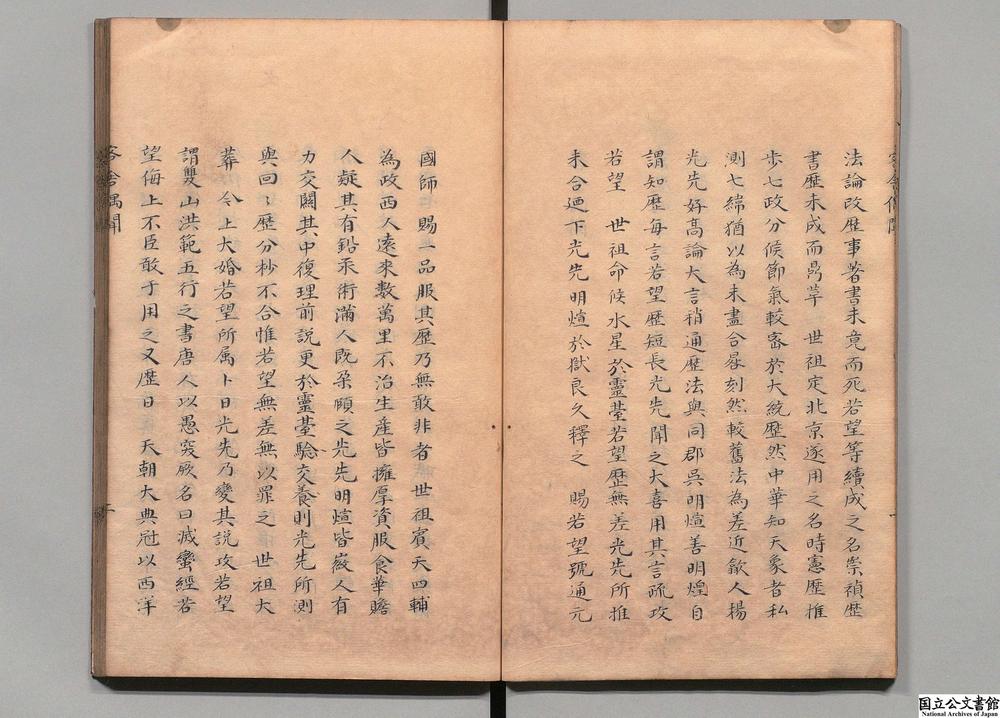 法論改歷事著書未竟而死若望等續成之名崇禎歷
書歷未成而鼎革　世祖定北京遂用之名時憲歷推
步七政分候節氣較密於大統歷然中華知天象者私
測七緯猶以為未盡合晷刻然較舊法為差近歙人揚
光先好高論大言稍通歷法與同郡吳明煊善明煌自
謂知歷每言若望歷短長光先聞之大喜用其言疏攻
若望　世祖命候水星於靈臺若望歷無差光先所推
未合廼下光先明煊於獄良久釋之　賜若望號通元
國師　賜一品服其歷乃無敢非者　世祖賓天四輔
為政西人遠來數萬里不治生產皆擁厚資服食華贍
人疑其有鉛汞術滿人既朶頤之光先明煊皆嶶人有
力交關其中復理前說更於靈臺驗交養則光先所測
與回〻歷分杪不合惟若望無差無以罪之　世祖大
葬　今上大婚若望所属卜日光先乃變其説攻若望
謂雙山洪範五行之書唐人以愚突厥名曰滅蠻經若
望侮上不臣敢于用之又歷日　天朝大典冠以西洋
客舍偶聞
国立公文書館
National Archives of Japan